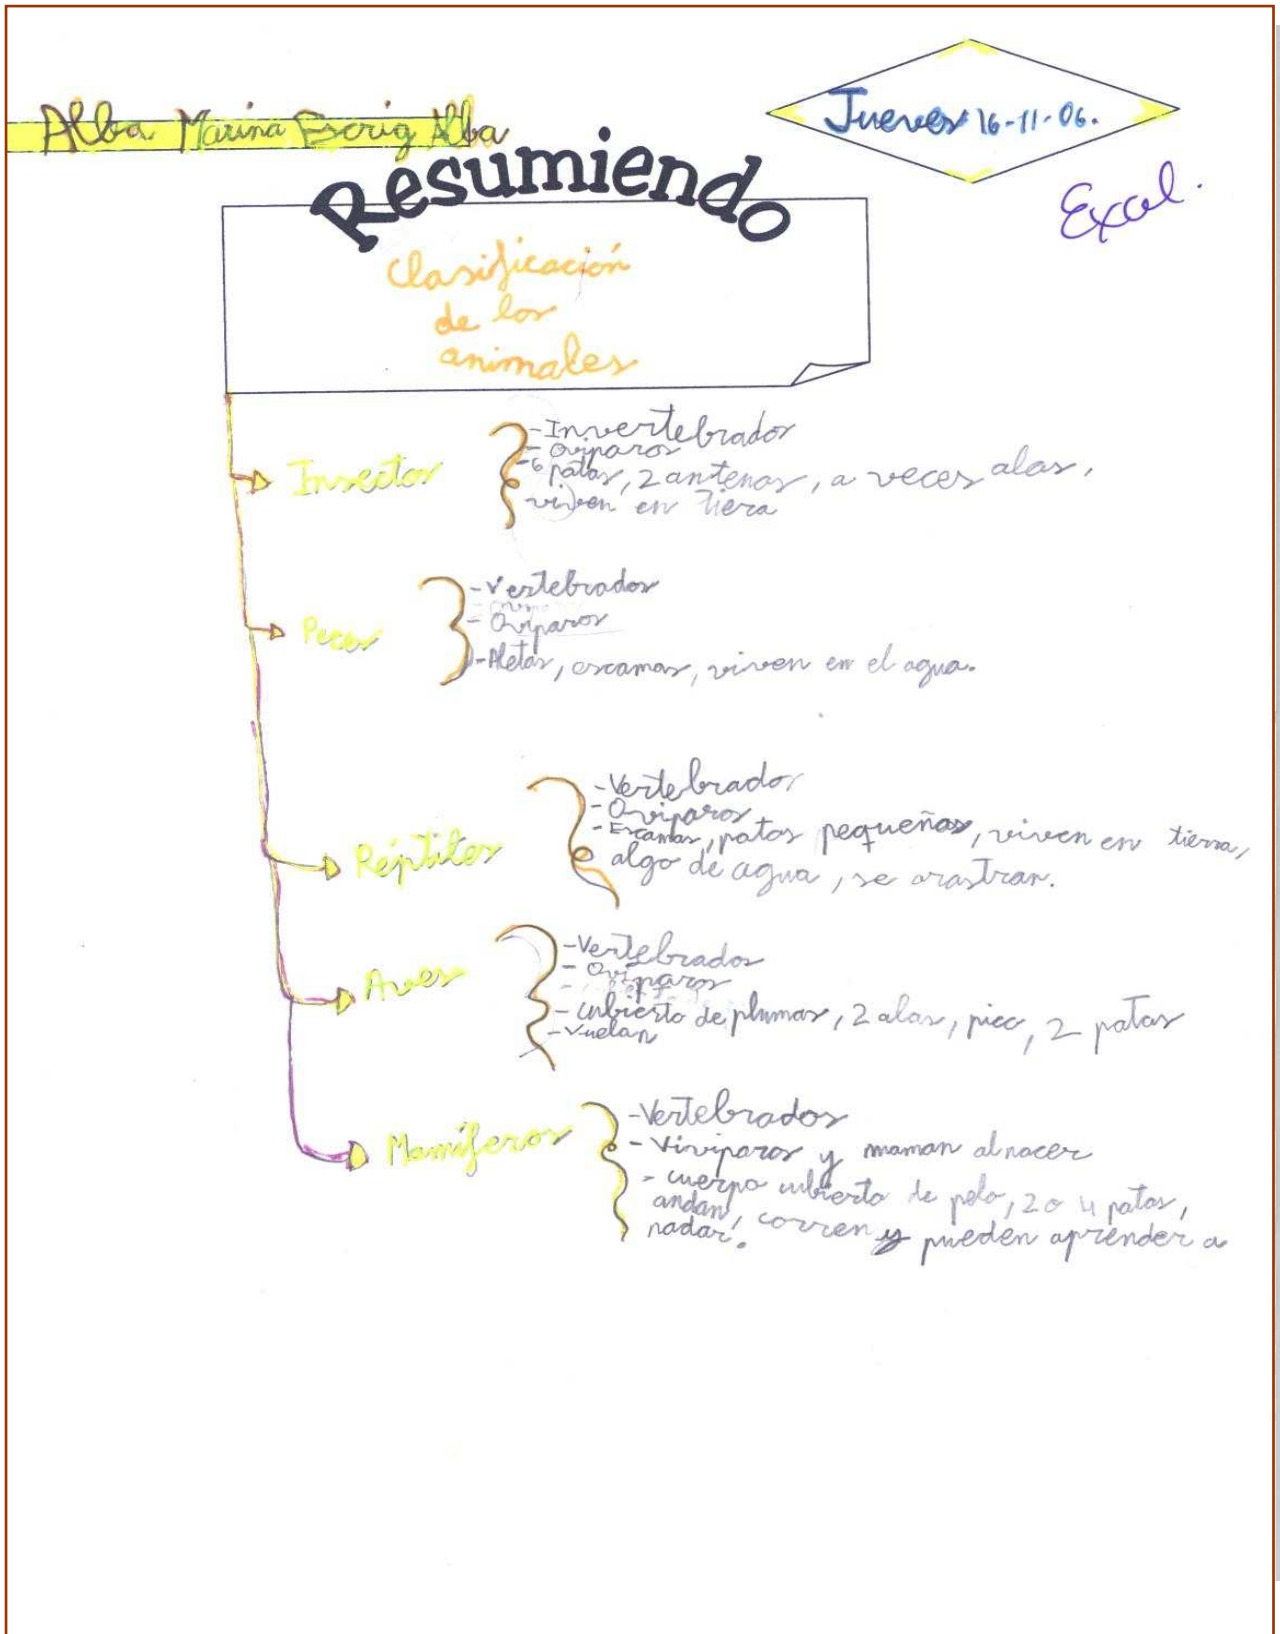 Alba Marina Escrig Alba
Jueves 16-11-06.
Resumiendo
Excel.
Clasificación
de los
animales
Insectos
-Invertebrados
- Oviparos
-6 patas, 2 antenas, a veces alas,
viven en tiera
Peces
-Vertebrados
- Oviparos
-Aletas, escamas, viven en el agua.
Réptiles
-Vertebrados
-Oviparos
-Escamas, patas pequeñas, viven en tierra,
algo de agua, se arastran.
Aves
-Vertebrados
- Oviparos
- cubierto de plumas, 2 alas, pico, 2 patas
-Vuelan
Mamíferos
-Vertebrados
- Viviparos y maman al nacer
- cuerpo cubierto de pelo, 2 o 4 patas,
andan, corren y pueden aprender a
nadar.